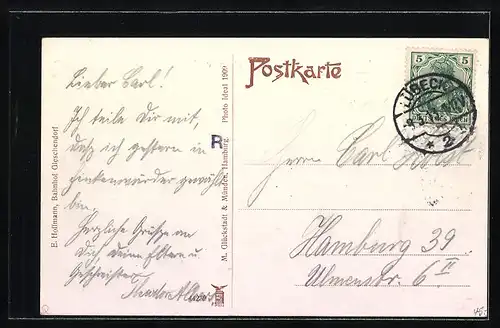 E. Hoffmann, Bahnhof Gleschendorf
Lieber Carl!
Ich teile Dir mit,
daß ich gestern in
gewählt
bin.
Herzliche Grüße an
Dich Deine Eltern u.
Geschwister
R
M. Glückstadt & Münden, Hamburg. Photo Ideal 1909
Postkarte
5 5
LÜBECK
* 2 *
Herrn Carl
Hamburg 39
Ulmenstr. 6 II